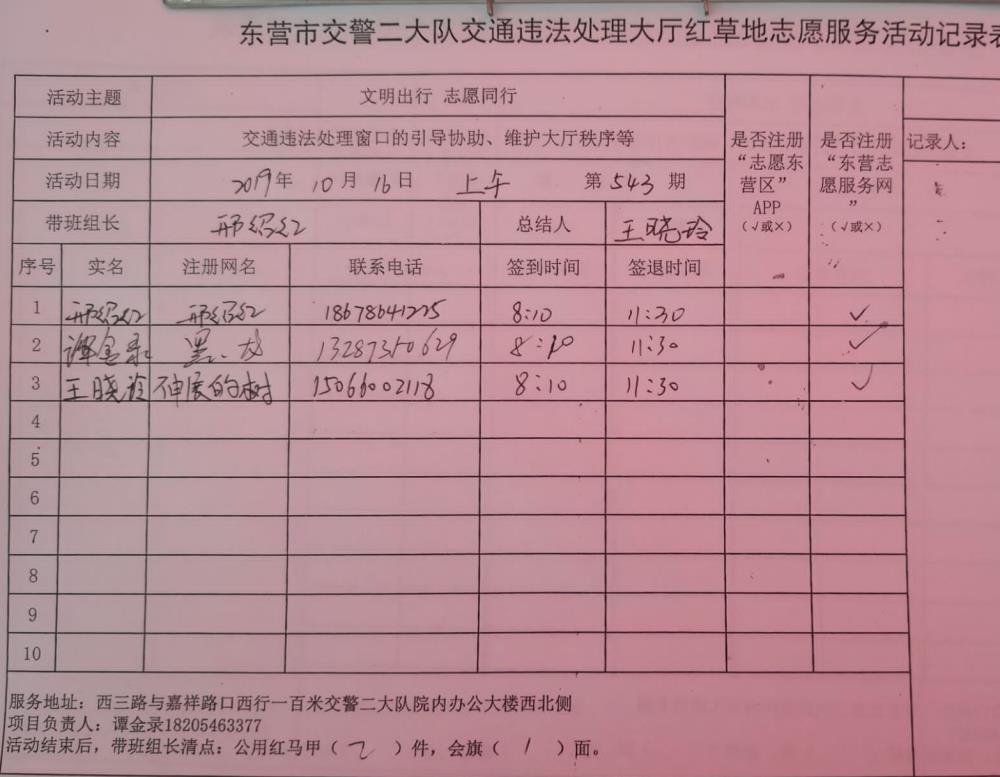 东营市交警二大队交通违法处理大厅红草地志愿服务活动记录表
活动主题 文明出行 志愿同行
活动内容 交通违法处理窗口的引导协助、维护大厅秩序等
活动日期 2019年 10月 16日 上午 第 543 期
带班组长 邢绍红 总结人 王晓玲
是否注册“志愿东营区”APP（√或×）
是否注册“东营志愿服务网”（√或×）
记录人：
序号 实名 注册网名 联系电话 签到时间 签退时间
1 邢绍红 邢绍红 18678641225 8:10 11:30 ✓
2 谭金录 黑、龙 13287350629 8:10 11:30 ✓
3 王晓玲 伸展的树 15066002118 8:10 11:30 ✓
4
5
6
7
8
9
10
服务地址：西三路与嘉祥路口西行一百米交警二大队院内办公大楼西北侧
项目负责人：谭金录18205463377
活动结束后，带班组长清点：公用红马甲（ 乙 ）件，会旗（ 1 ）面。